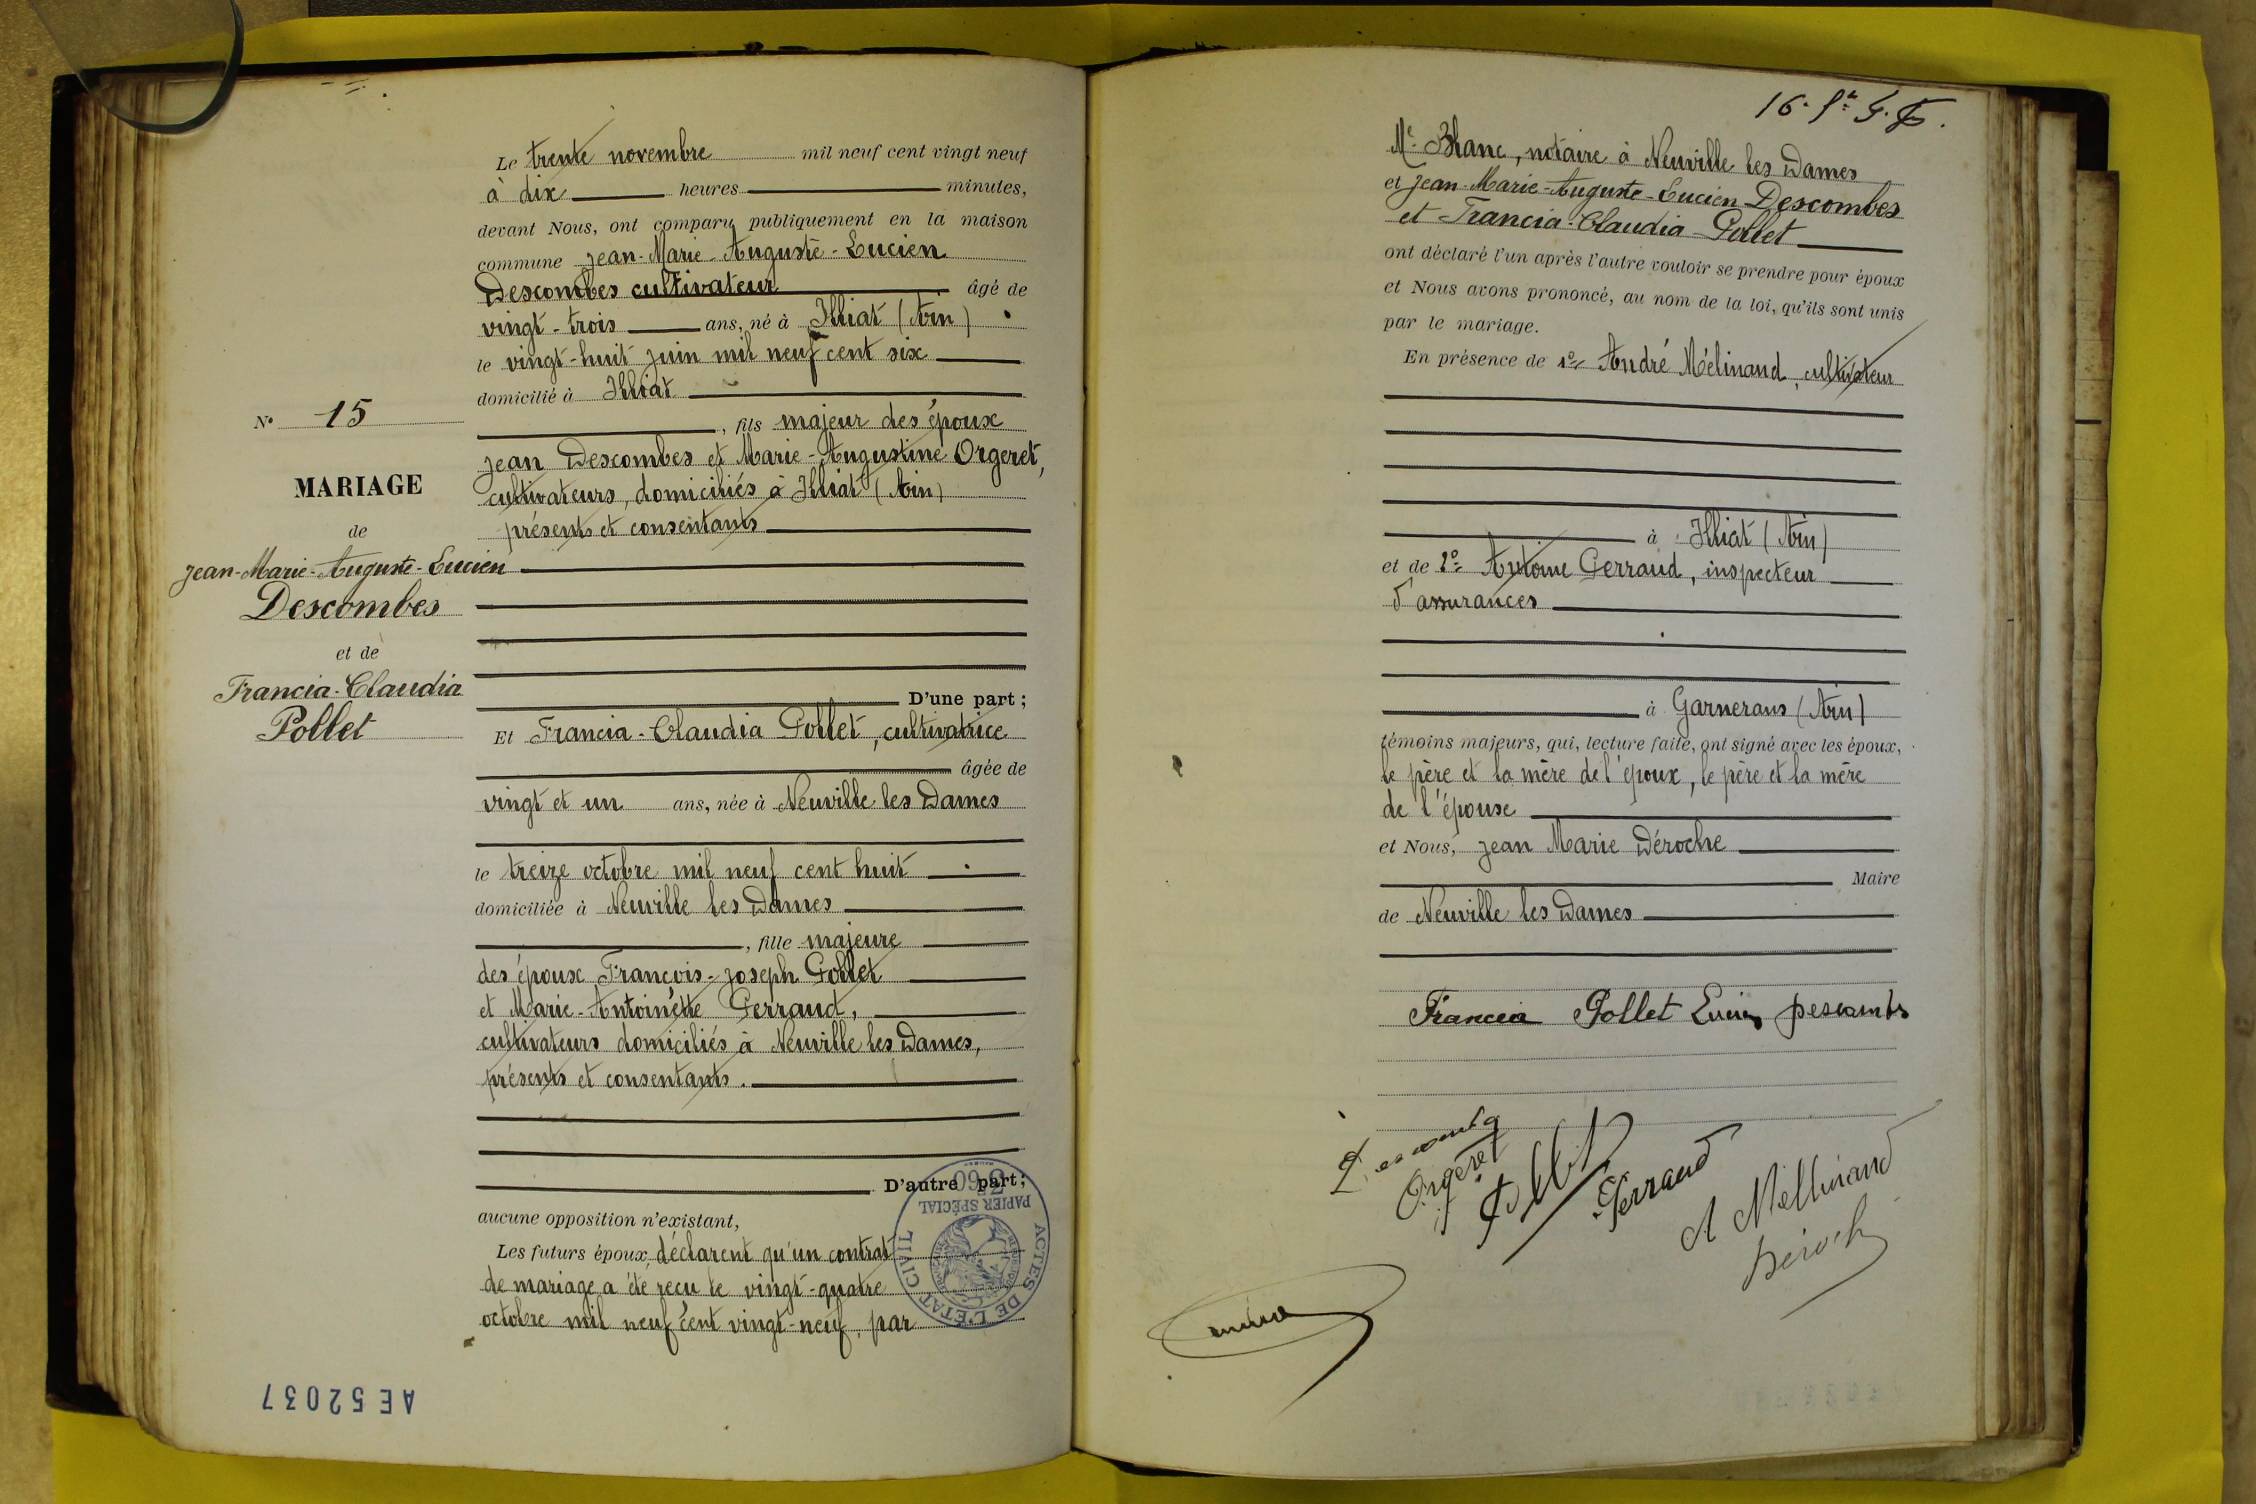 Le trente novembre mil neuf cent vingt neuf
à dix heures minutes,
devant Nous, ont comparu publiquement en la maison
commune Jean-Marie-Auguste-Lucien
Descombes cultivateur âgé de
vingt-trois ans, né à Illiat (Ain)
le vingt-huit juin mil neuf cent six
domicilié à Illiat
, fils majeur des époux
Jean Descombes et Marie-Augustine Orgeret,
cultivateurs, domiciliés à Illiat (Ain)
présents et consentants
D'une part;
Et Francia-Claudia Pollet, cultivatrice
âgée de
vingt et un ans, née à Neuville les Dames
le treize octobre mil neuf cent huit
domiciliée à Neuville les Dames
, fille majeure
des époux François-Joseph Pollet
et Marie-Antoinette Perraud,
cultivateurs domiciliés à Neuville les Dames,
présents et consentants.
D'autre part;
aucune opposition n'existant,
Les futurs époux déclarent qu'un contrat
de mariage a été reçu le vingt-quatre
octobre mil neuf cent vingt-neuf, par
N° 15
MARIAGE
de
Jean-Marie-Auguste-Lucien
Descombes
et de
Francia-Claudia
Pollet
PAPIER SPÉCIAL
ACTES DE L'ÉTAT CIVIL
AE52037
16.
Me Blanc, notaire à Neuville les Dames
et Jean-Marie-Auguste-Lucien Descombes
et Francia-Claudia-Pollet
ont déclaré l'un après l'autre vouloir se prendre pour époux
et Nous avons prononcé, au nom de la loi, qu'ils sont unis
par le mariage.
En présence de 1° André Mélinand, cultivateur
à Illiat (Ain)
et de 2° Antoine Perraud, inspecteur
d'assurances
à Garnerans (Ain)
témoins majeurs, qui, lecture faite, ont signé avec les époux,
le père et la mère de l'époux, le père et la mère
de l'épouse
et Nous, Jean Marie Déroche
Maire
de Neuville les Dames
Francia Pollet Lucien Descombes
Descombes
Orgeret
Pollet
Perraud
A Mellinand
Déroche